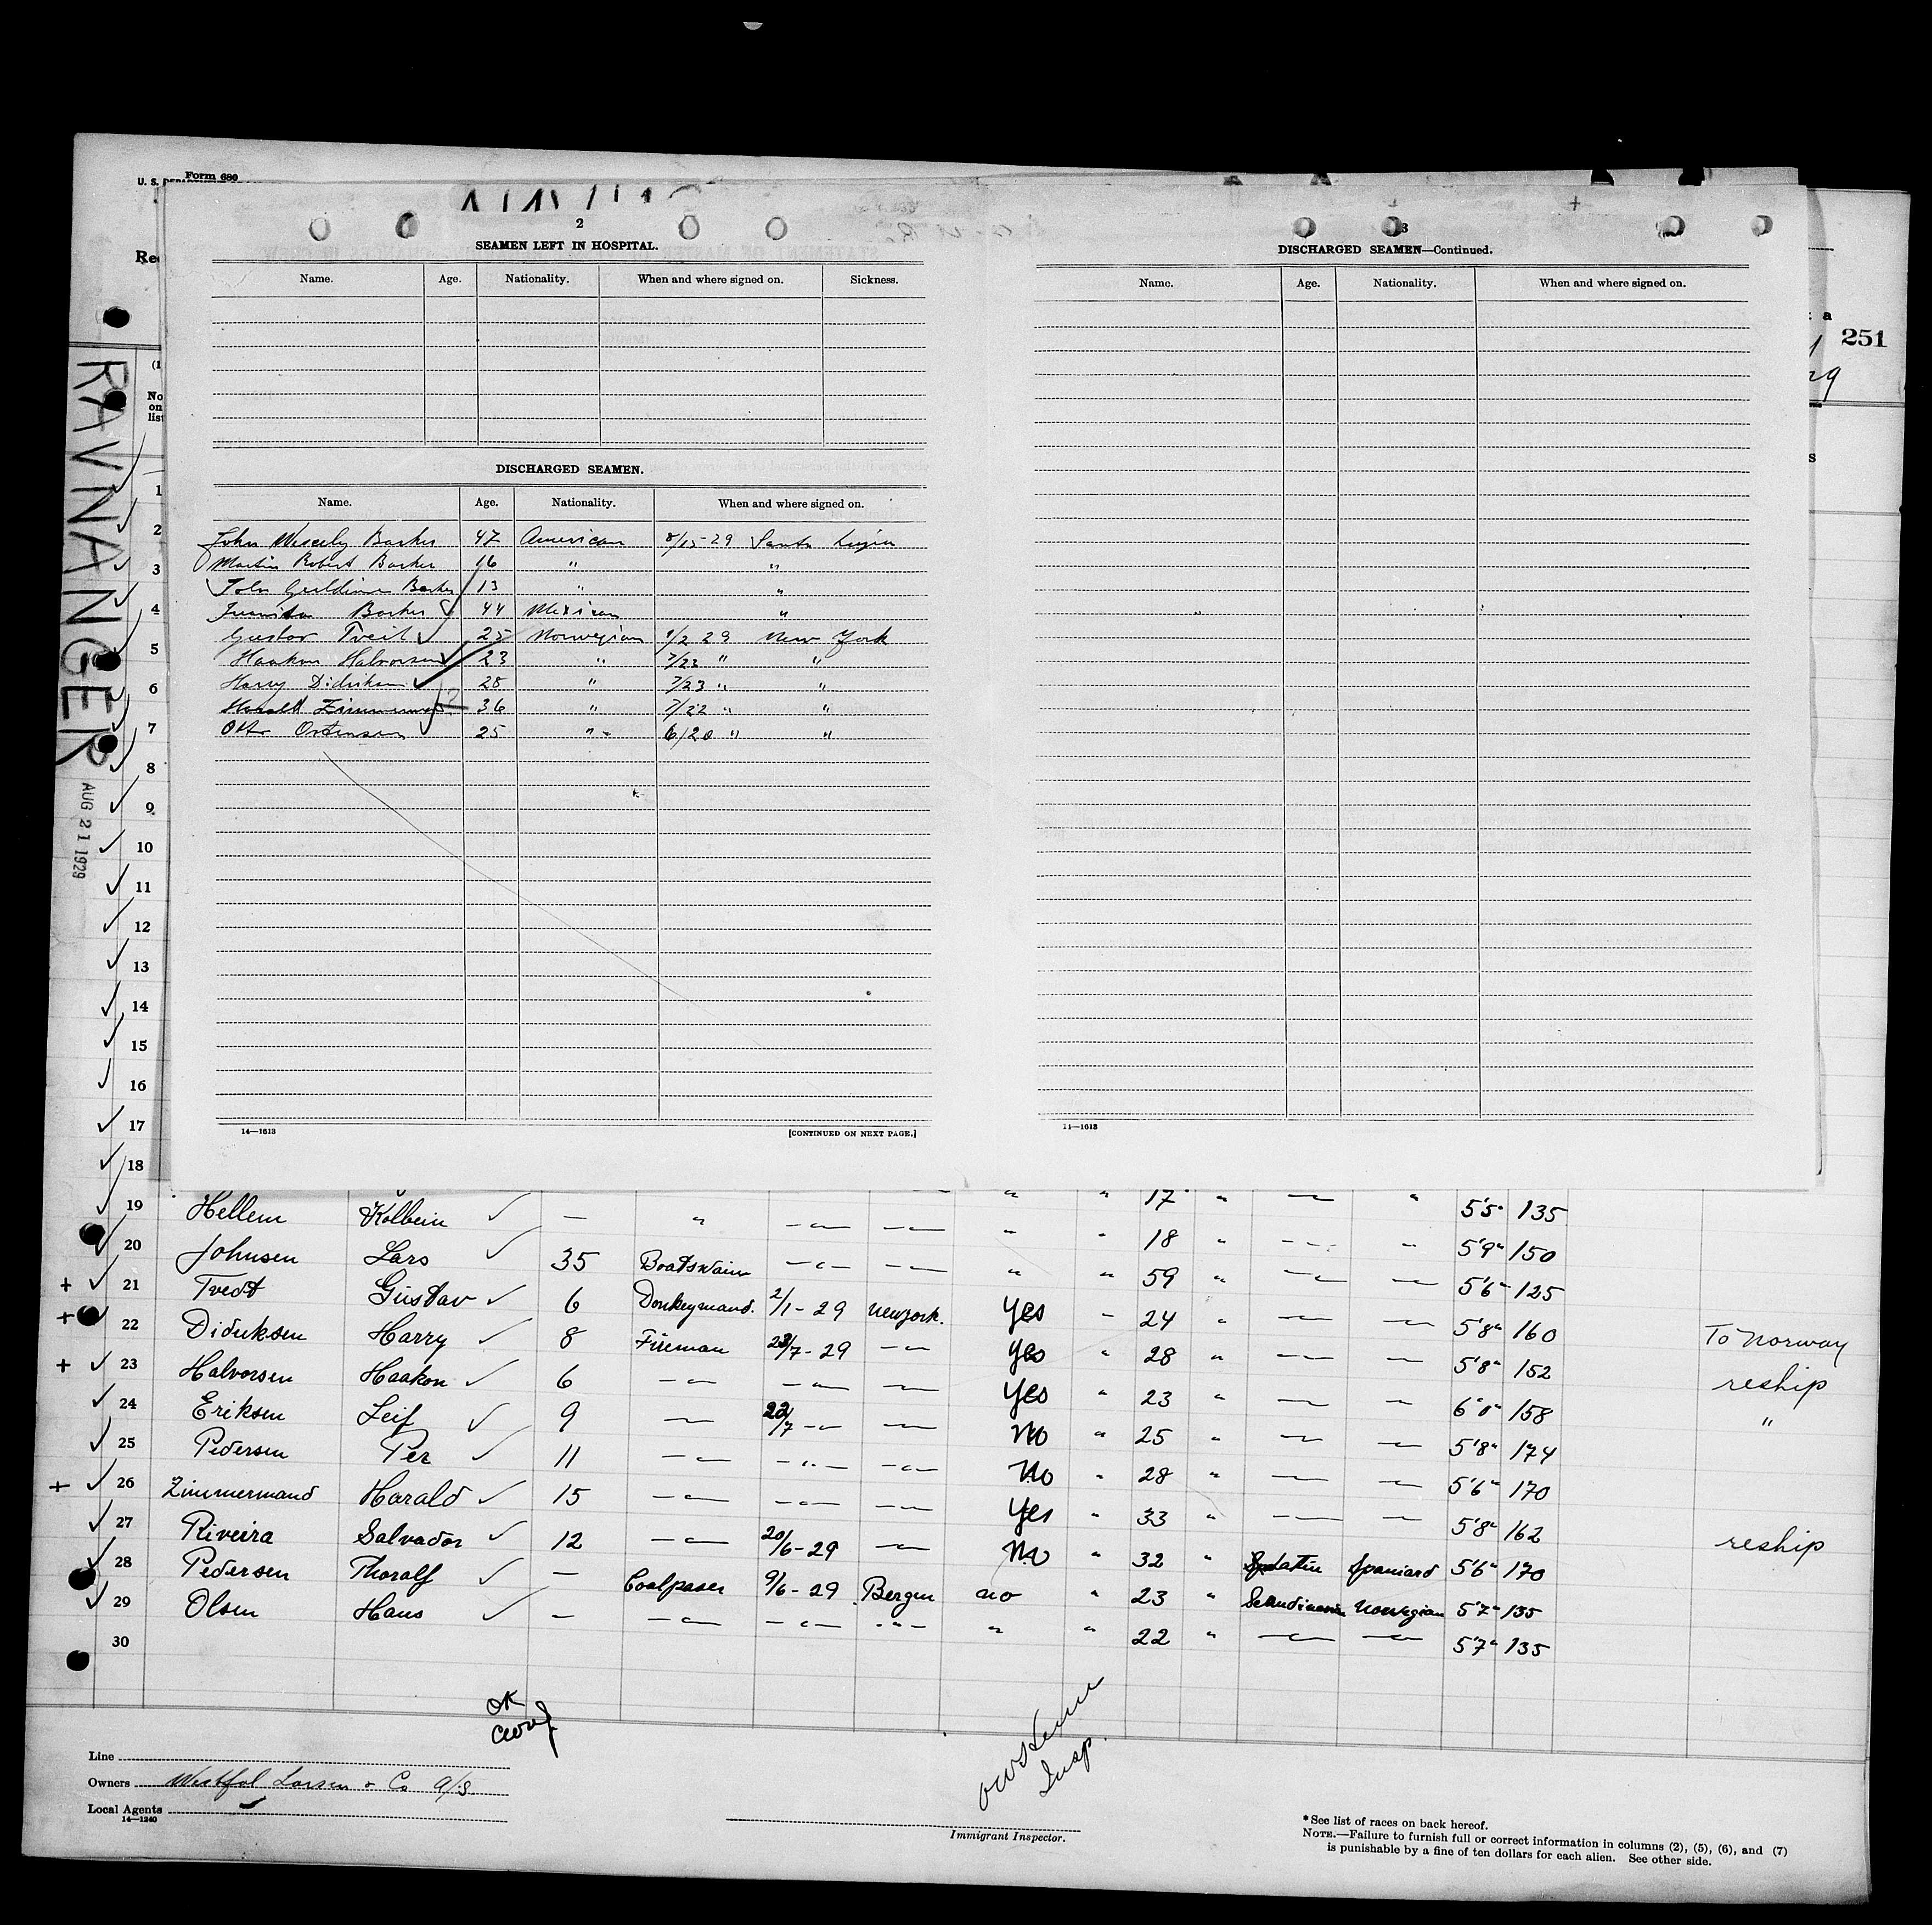 Form 680
U. S.
251
29
RAVNANGER
AUG 21 1929
No
on
list
2
SEAMEN LEFT IN HOSPITAL.
Name. Age. Nationality. When and where signed on. Sickness.
DISCHARGED SEAMEN.
Name. Age. Nationality. When and where signed on.
John Barker 47 American 8/15-29
Martin Robert Barker 16 " "
Barker 13 " "
Juanita Barker 44 Mexican "
Gustav Tveit 25 Norwegian 1/2 29 New York
Haakon Halvorsen 23 " 7/23 " "
Harry Didriksen 28 " 7/23 " "
Harald Zimmermann 36 " 7/22 " "
Otto 25 " 6/20 " "
14—1613 [CONTINUED ON NEXT PAGE.]
3
DISCHARGED SEAMEN—Continued.
Name. Age. Nationality. When and where signed on.
14—1613
1
2
3
4
5
6
7
8
9
10
11
12
13
14
15
16
17
18
17
19 Hellem Kolbein — " " " 18 " " 5'5" 135
20 Johnsen Lars 35 Boatswain " " 59 " 5'9" 150
+ 21 Tvedt Gustav 6 Donkeymand. 2/1-29 New York. Yes 24 " 5'6" 125
+ 22 Didriksen Harry 8 Fireman 23/7-29 Yes " 28 " 5'8" 160 To Norway
+ 23 Halvorsen Haakon 6 Yes " 23 " 5'8" 152 reship
24 Eriksen Leif 9 22/7 No " 25 " 6'0" 158 "
25 Pedersen Per 11 No " 28 " 5'8" 174
+ 26 Zimmermand Harald 15 Yes " 33 " 5'6" 170
27 Riveira Salvador 12 20/6-29 No " 32 " Latin Spaniard 5'8" 162 reship
28 Pedersen Thoralf — Coalpaser 9/6-29 Bergen no " 23 " Scandinavian Norwegian 5'6" 170
29 Olsen Hans — " " 22 " 5'7" 135
30 5'7" 135
OK
Insp.
Line
Owners Westfal Larsen & Co A/S.
Local Agents
14—1240
Immigrant Inspector.
*See list of races on back hereof.
NOTE.—Failure to furnish full or correct information in columns (2), (5), (6), and (7)
is punishable by a fine of ten dollars for each alien. See other side.